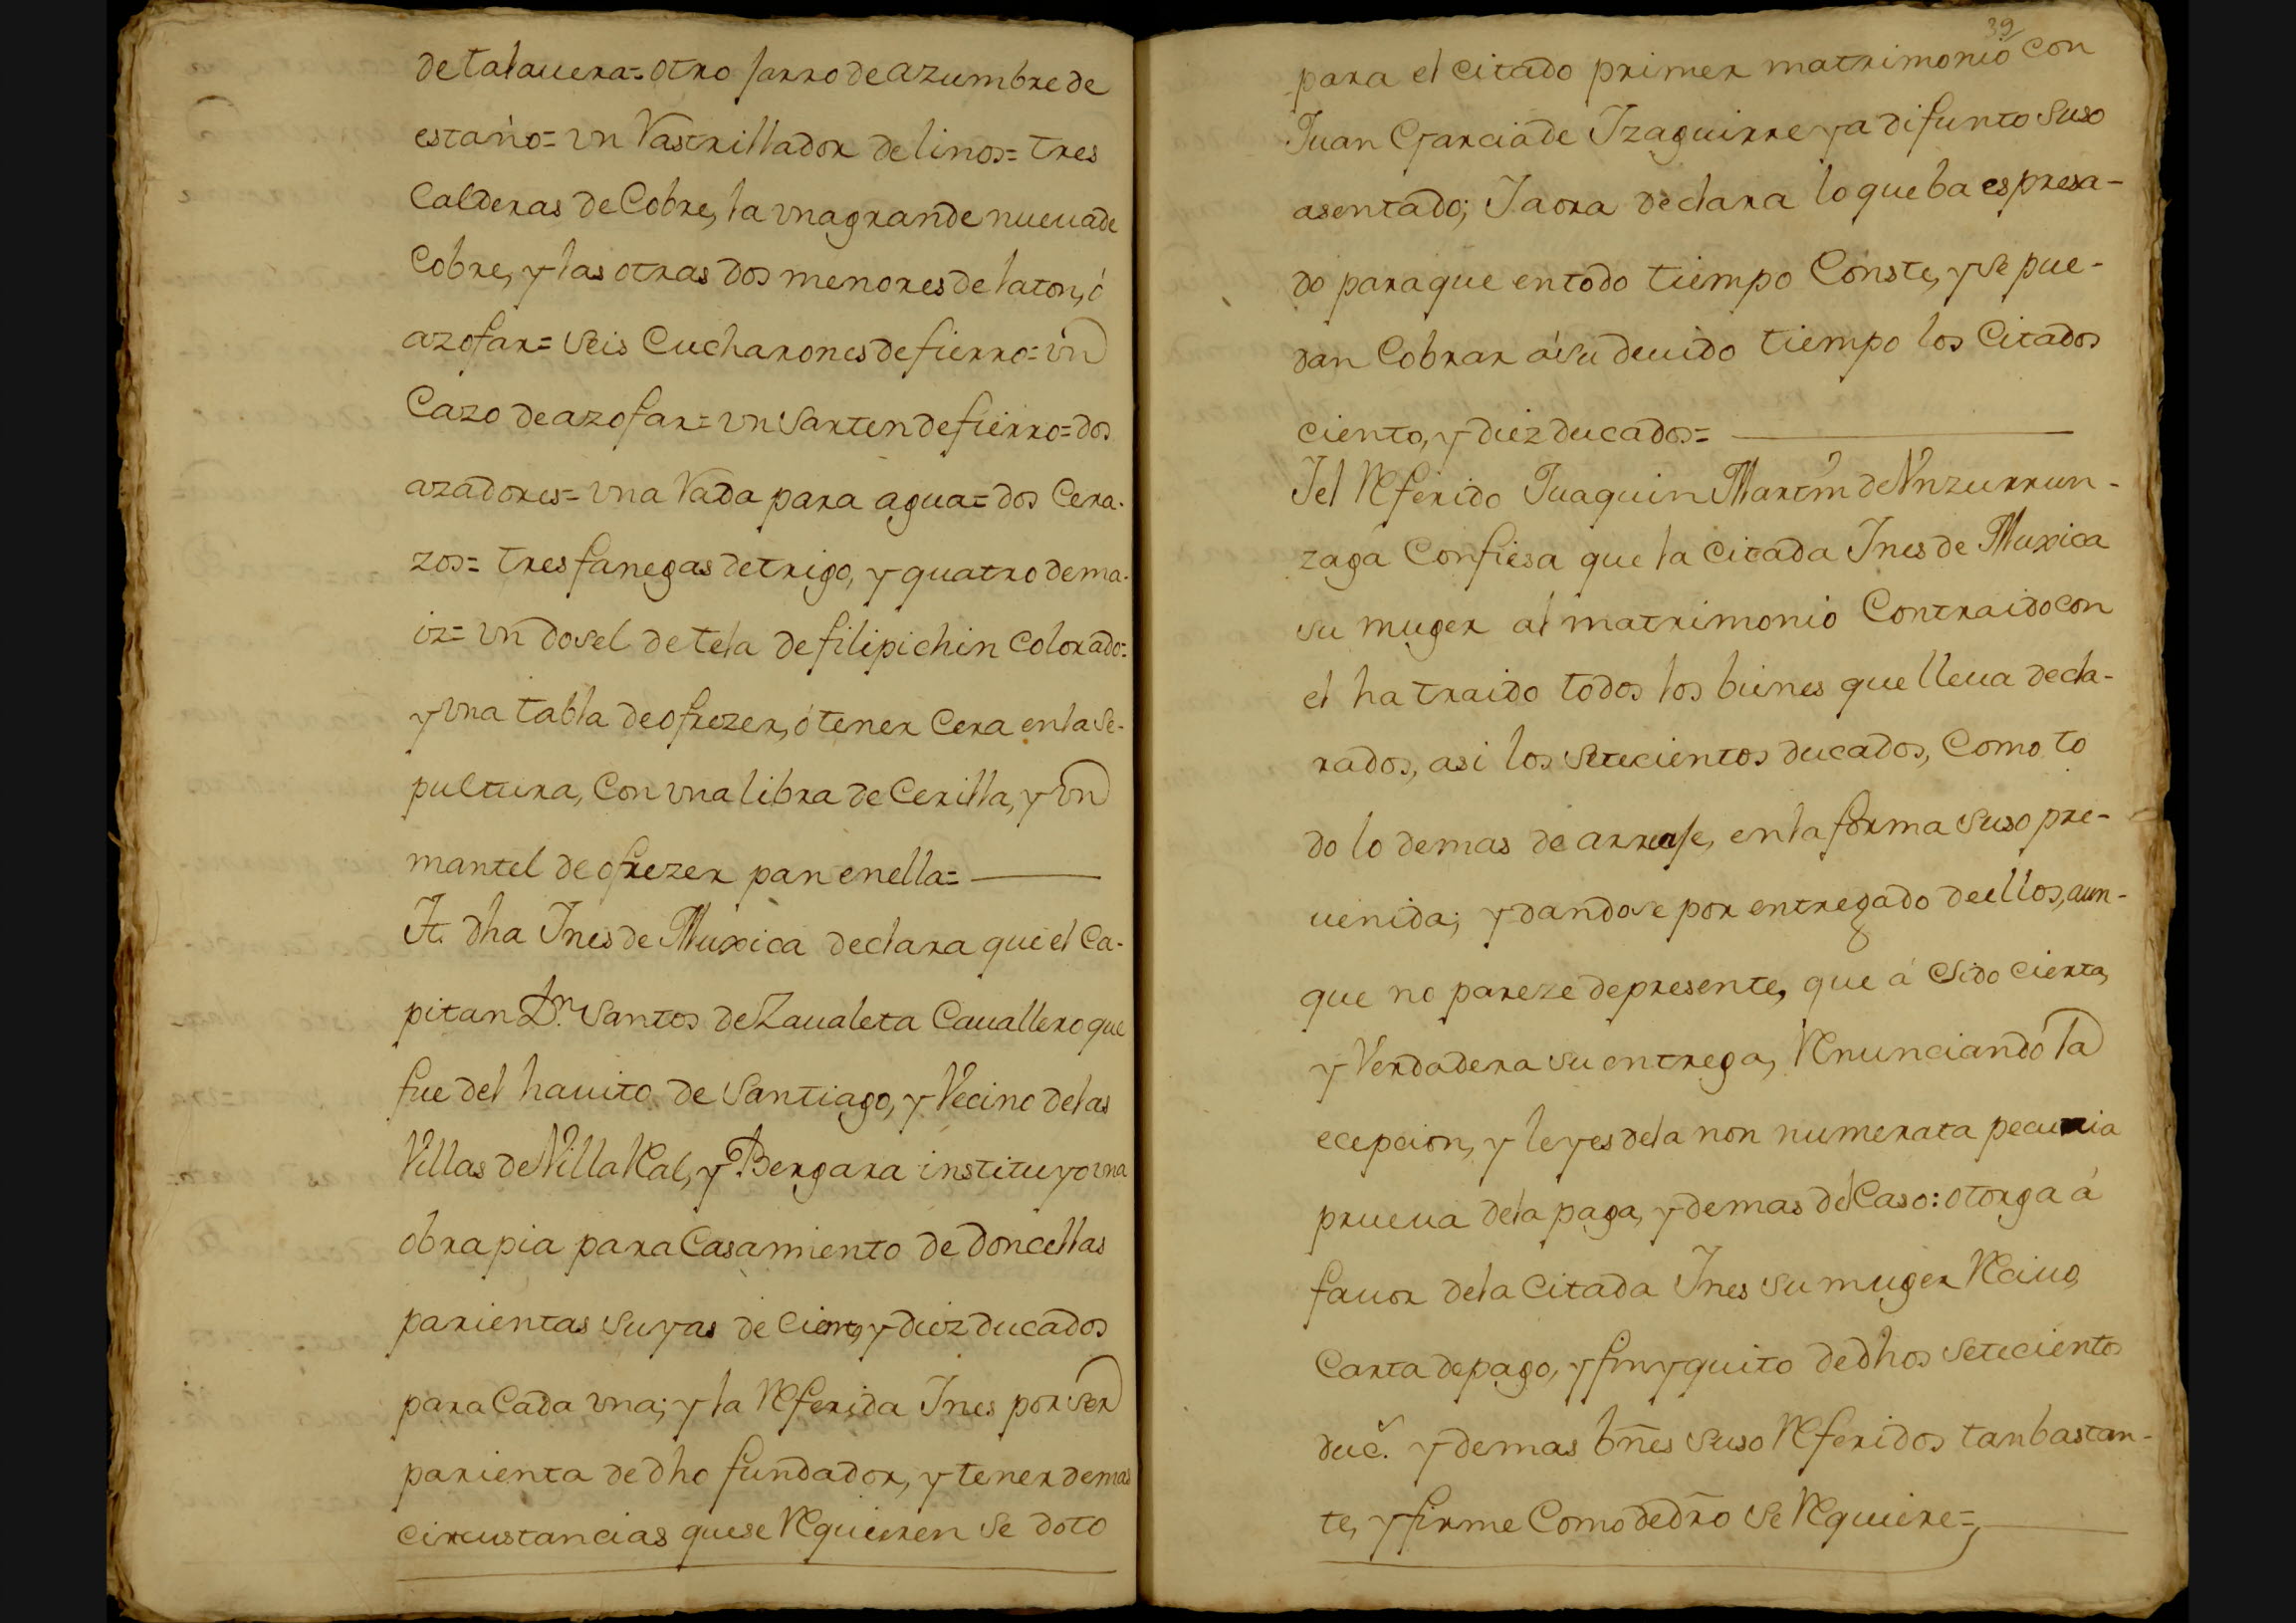 de talauera= otro jarro de azumbre de
estaño= vn Rastrillador de linos= tres
Calderas de Cobre, la vna grande nueua de
Cobre, y las otras dos menores de laton, ó
azofar= seis Cucharones de fierro= vn
Cazo de azofar= vn sarten de fierro= dos
azadores= vna Rada para agua= dos Cera-
zos= tres fanegas de trigo, y quatro de ma-
iz= vn dosel de tela de filipichin Colorado=
y vna tabla de ofrezer, ó tener Cera en la se-
pultura, Con vna libra de Cerilla, y vn
mantel de ofrezer pan en ella=
It. dha Ines de Muxica declara que el Ca-
pitan Dn. Santos de Zaualeta Cauallero que
fue del hauito de Santiago, y Vecino de las
Villas de Villa Real, y Bergara instituyo vna
obra pia para Casamiento de Doncellas
parientas suyas de Ciento, y diez ducados
para Cada vna; y la Referida Ines por ser
parienta de dho fundador, y tener demas
circustancias que se Requieren se doto
39
para el citado primer matrimonio con
Juan Garcia de Izaguirre ya difunto suso
asentado; I aora declara lo que ba espresa-
do para que en todo tiempo Conste, y se pue-
dan Cobrar á su deuido tiempo los Citados
ciento, y diez ducados=
I el Referido Juaquin Martin de Vnzurrun-
zaga Confiesa que la Citada Ines de Muxica
su muger al matrimonio Contraido con
el ha traido todos los bienes que lleua decla-
rados, asi los setecientos ducados, Como to
do lo demas de arreo, en la forma suso pre-
uenida; y dandose por entregado de ellos, aun-
que no pareze de presente, que á sido cierta,
y Verdadera su entrega, Renunciando la
ecepcion, y leyes de la non numerata pecunia
prueua de la paga, y demas del Caso: otorga á
fauor de la Citada Ines su muger Reciuo,
Carta de pago, y finyquito de dhos setecientos
duc.s y demas bnes suso Referidos tan bastan-
te, y firme Como de dro se Requiere=